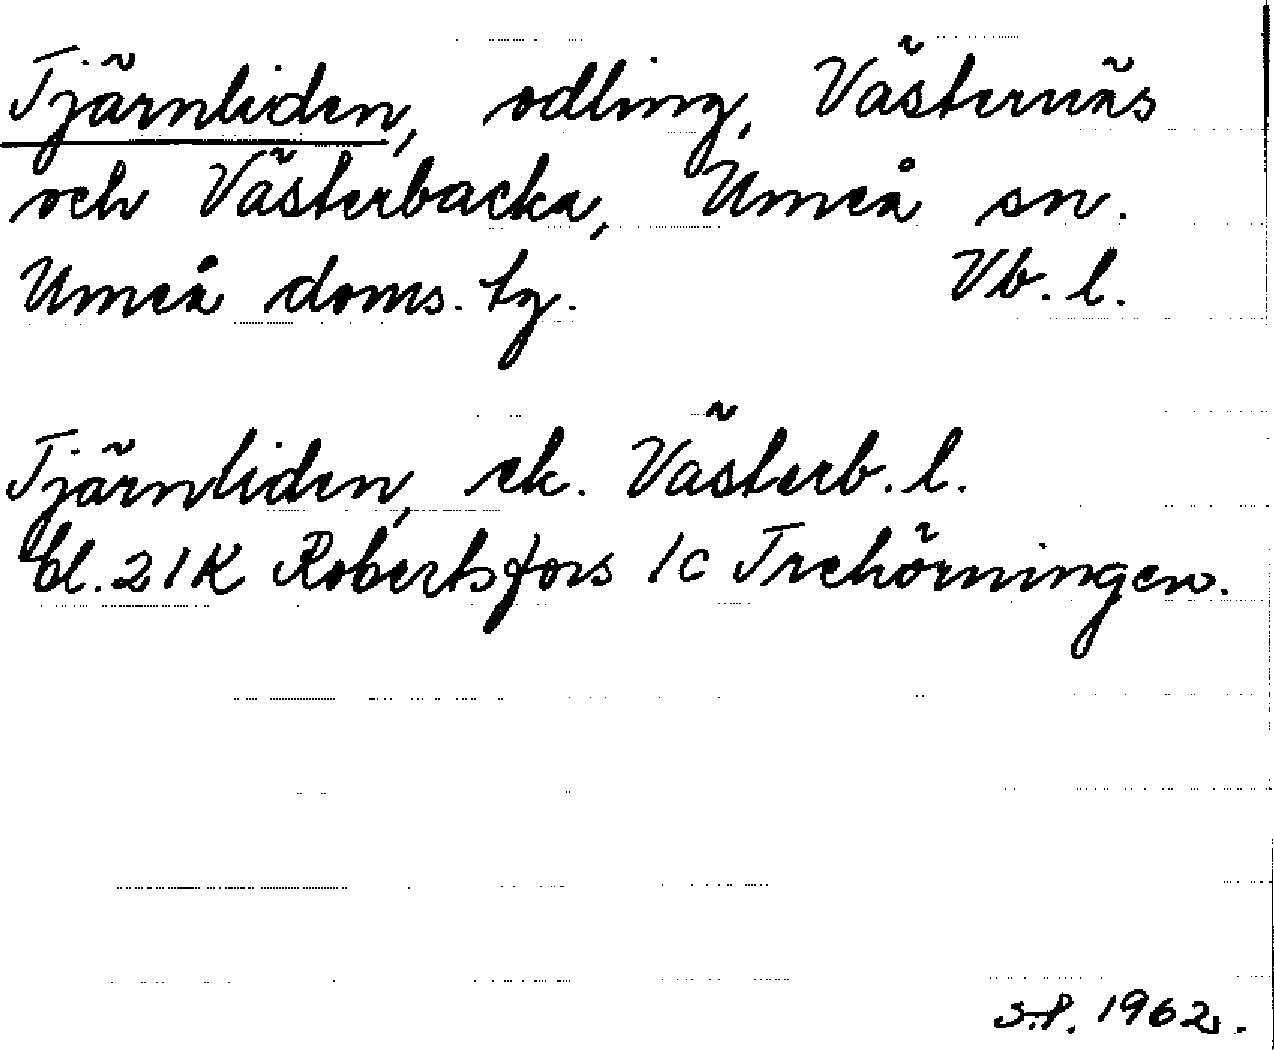 Tjärnliden, odling, Västernäs
och Västerbacka, Umeå sn.
Umeå doms. tg. Vb. l.
Tjärnliden, ek. Västerb. l.
bl. 21K Robertsfors 1c Trehörningen.
1962.